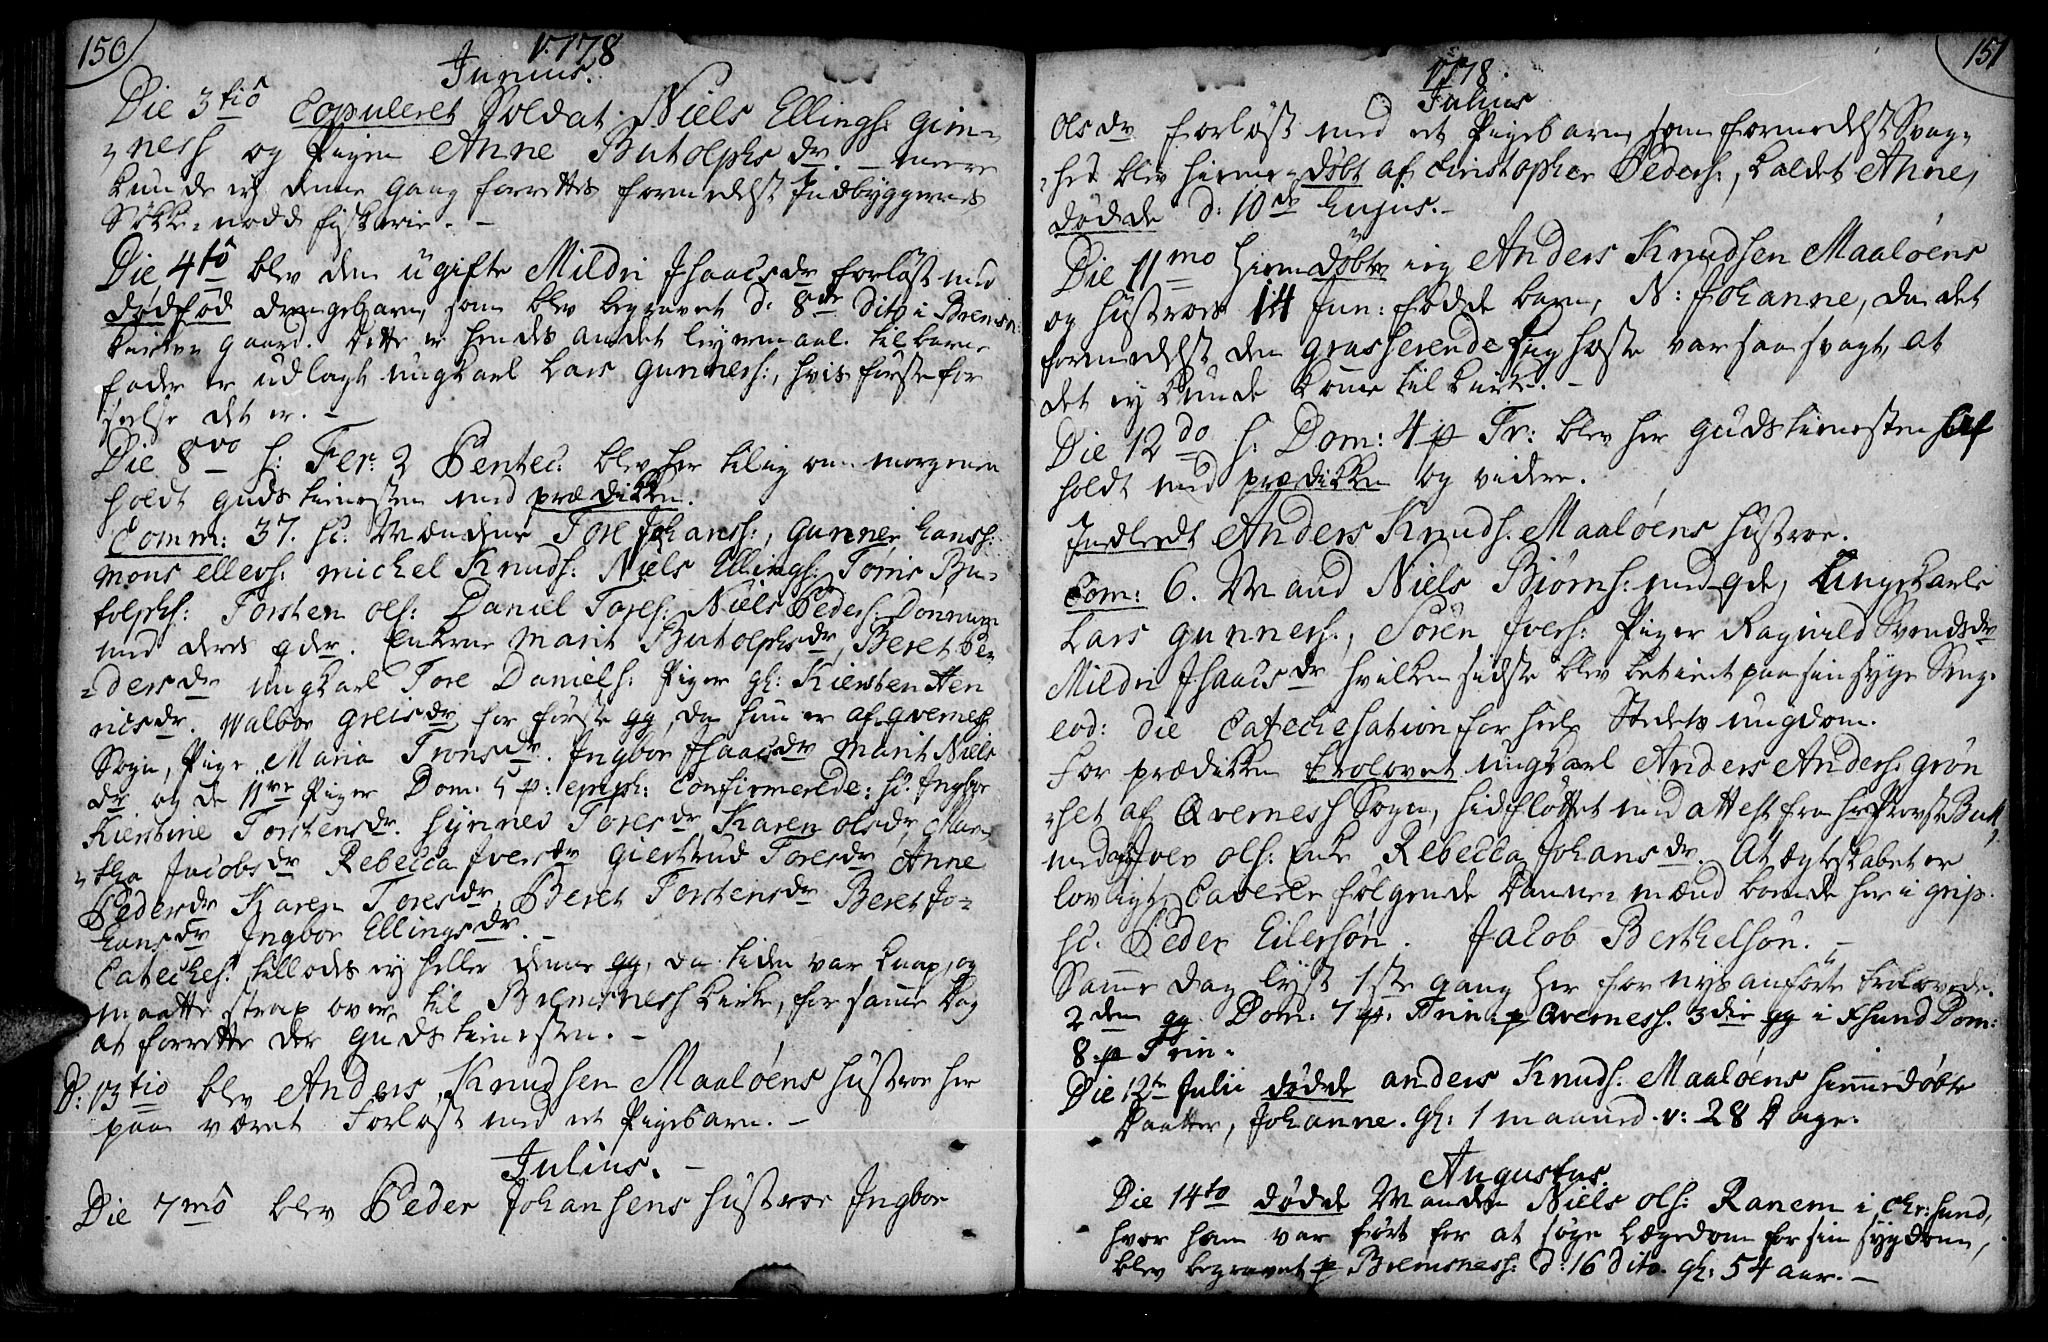 150
1778
Junius.
Die 3tio Copuleret Soldat Niels Ellings: Gim-
ness og Pigen Anne Butolphs dr. - meere
kunde ej denne gang forrettes formedelst Indbyggernes
nødd fiskerie. -
Die 4to blev den ugifte Mildri Isaacsdr forløst med
dødfød drengebarn, som blev begravet d: 8de dito i Bremsn:
Kirke gaard. Dette er hendes andet leyermaal. til barne
fader er udlagt ungkarl Lars Gunners:, hvis første for
seelse det er. -
Die 8vo h: Fer: 2 Pentec: blev her tilig om morgenen
holdt Guds tienesten med prædikken.
Comm: 37. sc: Mændene Tore Johans:, Gunner Hans:
Mons Ellevs: Michel Knuds: Niels Ellings: Tønis Bu-
tolphs: Torsten Ols: Daniel Tores: Niels Peders: Dønnum
med deres qdr. Enkerne Marit Butolphsdr, Beret Pe
dersdr ungkarl Tore Daniels: Piger gl: Kiersten Hen
ricsdr. Walbor Greisdr for første gg, da hun er af Qvernes
Sogn, Pige Maria Tronsdr. Ingbor Isaacsdr Marit Niels
dr og de 11ve Piger Dom. 5 p: epiph: Confirmerede: sc. Ingbor
Kierstine Torstensdr. Synnev Toresdr Karen Olsdr Mar
tha Jacobsdr Rebecca Iversdr Giertrud Toresdr Anne
Pedersdr Karen Toresdr, Beret Torstensdr Beret Jo-
hansdr Ingbor Ellingsdr. -
Cateches: tillodes ej heller denne gg, da tiden var knap, og
maatte strax over til Bremsness Kirke, for samme Dag
at forrette der Guds tienesten. -
D: 13tio blev Anders Knudsen Maaløens hustroe her
paa været forløst med et Pigebarn. -
Julius. -
Die 7mo blev Peder Johansens hustroe Ingbor
151
1778.
Julius
Olsdr forløst med et Pigebarn, som formedelst Svag-
hed blev hieme-døbt af Christopher Peders:, kaldet Anne,
dødde d: 10de Hujus. -
Die 11mo hiemdøbte ieg Anders Knudsen Maaløens
og hustroes 14 Jun: fødde barn, N: Johanne, da det
formedelst den grasserende hoste var saa svagt, at
det ej kunde komme til kirke. -
Die 12do h: Dom: 4 p Tr: blev her Gudstienesten
holdt med prædikken og videre.
Indledt Anders Knuds. Maaløens hustroe.
Com: 6. Mand Niels Biørns: med qde, Ungkarle
Lars Gunners:, Søren Ivers: Piger Ragnild Svendsdr
Mildri Isaacsdr hvilken sidste blev betient paa sin syge Seng.
eod: die Catechesation for heele Stedets ungdom.
For prædikken trolovet ungkarl Anders Anders: Grøn
set af Qverness Sogn, hidfløttet med attest fra hr Provst Butt,
med Iver Ols: Enke Rebecca Johansdr. At ægteskabet er
lovligt Caverer følgende danne-mænd boende her i Grip.
sc. Peder Eilersøn. Jacob Berthelsøn. -
Samme dag lyst 1ste gang her for nys anførte trolovede.
2den gg Dom: 7 p. Trin. p Qverness. 3die gg i Xsund Dom:
8 p Trin.
Die 12te Julii dødde Anders Knuds. Maaløens hiemedøbte
Daatter, Johanne. gl: 1 maaned. v: 28 Dage.
Augustus.
Die 14to dødde Manden Niels Ols: Ranem i Chr:sund,
hvor han var ført for at søge Lægedom for sin Sygdom,
blev begravet p Bremsness: d: 16 dito. gl: 54 aar. -